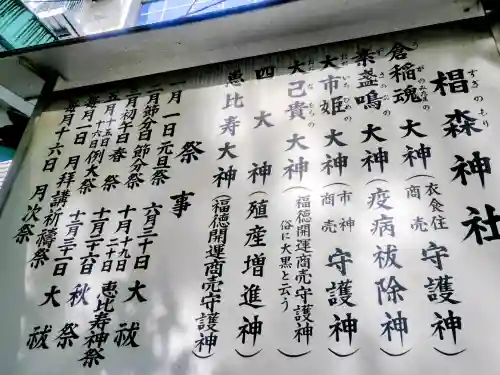 椙森神社
すぎのもり
倉稲魂大神（衣食住商売守護神）
くらいなたまの
素盞嗚大神（疫病祓除神）
すさのをの
大市姫大神（市神商売守護神）
おおいちひめの
大己貴大神（福徳開運商売守護神 俗に大黒と云う）
おおなむちの
四大神（殖産増進神）
恵比寿大神（福徳開運商売守護神）
祭事
一月一日元旦祭
二月節分日節分祭
二月初午日春祭
五月十五日 十六日例大祭
毎月一日月拝講祈禱祭
毎月十六日月次祭
六月三十日大祓
十月十九日 二十日恵比寿神祭
十一月十六日秋祭
十二月三十一日大祓